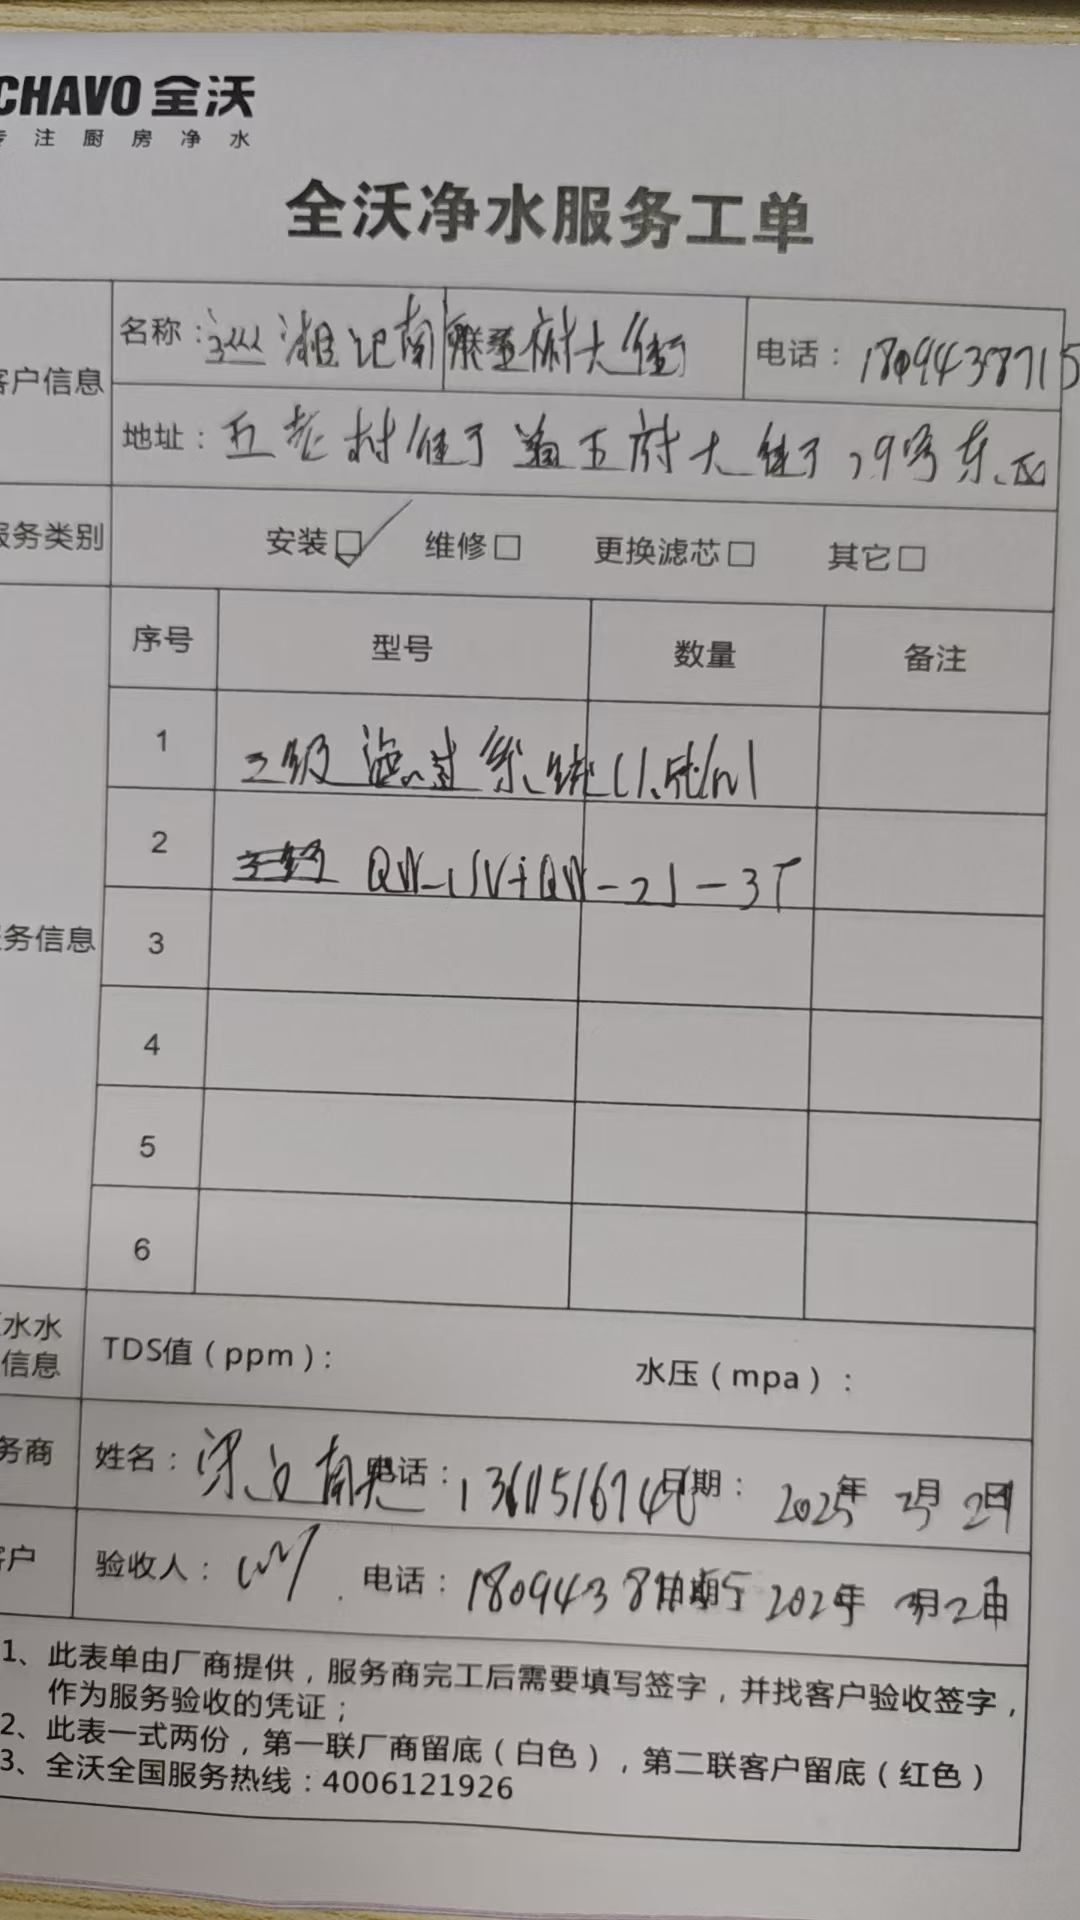 CHAVO 全沃
专注厨房净水
全沃净水服务工单
客户信息
名称: 湘记南 大街
电话: 18094387115
地址: 五老村街 府大街 29号东
服务类别
安装☑ 维修□ 更换滤芯□ 其它□
序号 型号 数量 备注
1 三级滤过系统(1.5t/h)
2 QW-UV+QW-2J-3T
服务信息
3
4
5
6
水水
信息
TDS值(ppm): 水压(mpa):
务商
姓名: 电话: 日期: 2025年 3月2日
客户
验收人: 电话: 180943871 日期: 2025年 3月2日
1、此表单由厂商提供,服务商完工后需要填写签字,并找客户验收签字,
作为服务验收的凭证;
2、此表一式两份,第一联厂商留底(白色),第二联客户留底(红色)
3、全沃全国服务热线:4006121926